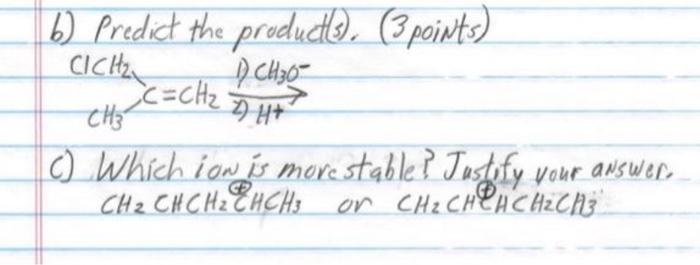 b) Predict the product(s). (3 points)
ClCH2
1) CH3O-
C=CH2
2) H+
CH3
c) Which ion is more stable? Justify your answer.
CH2 CHCH2 CHCH3 or CH2 CHCHCH2CH3
+ +